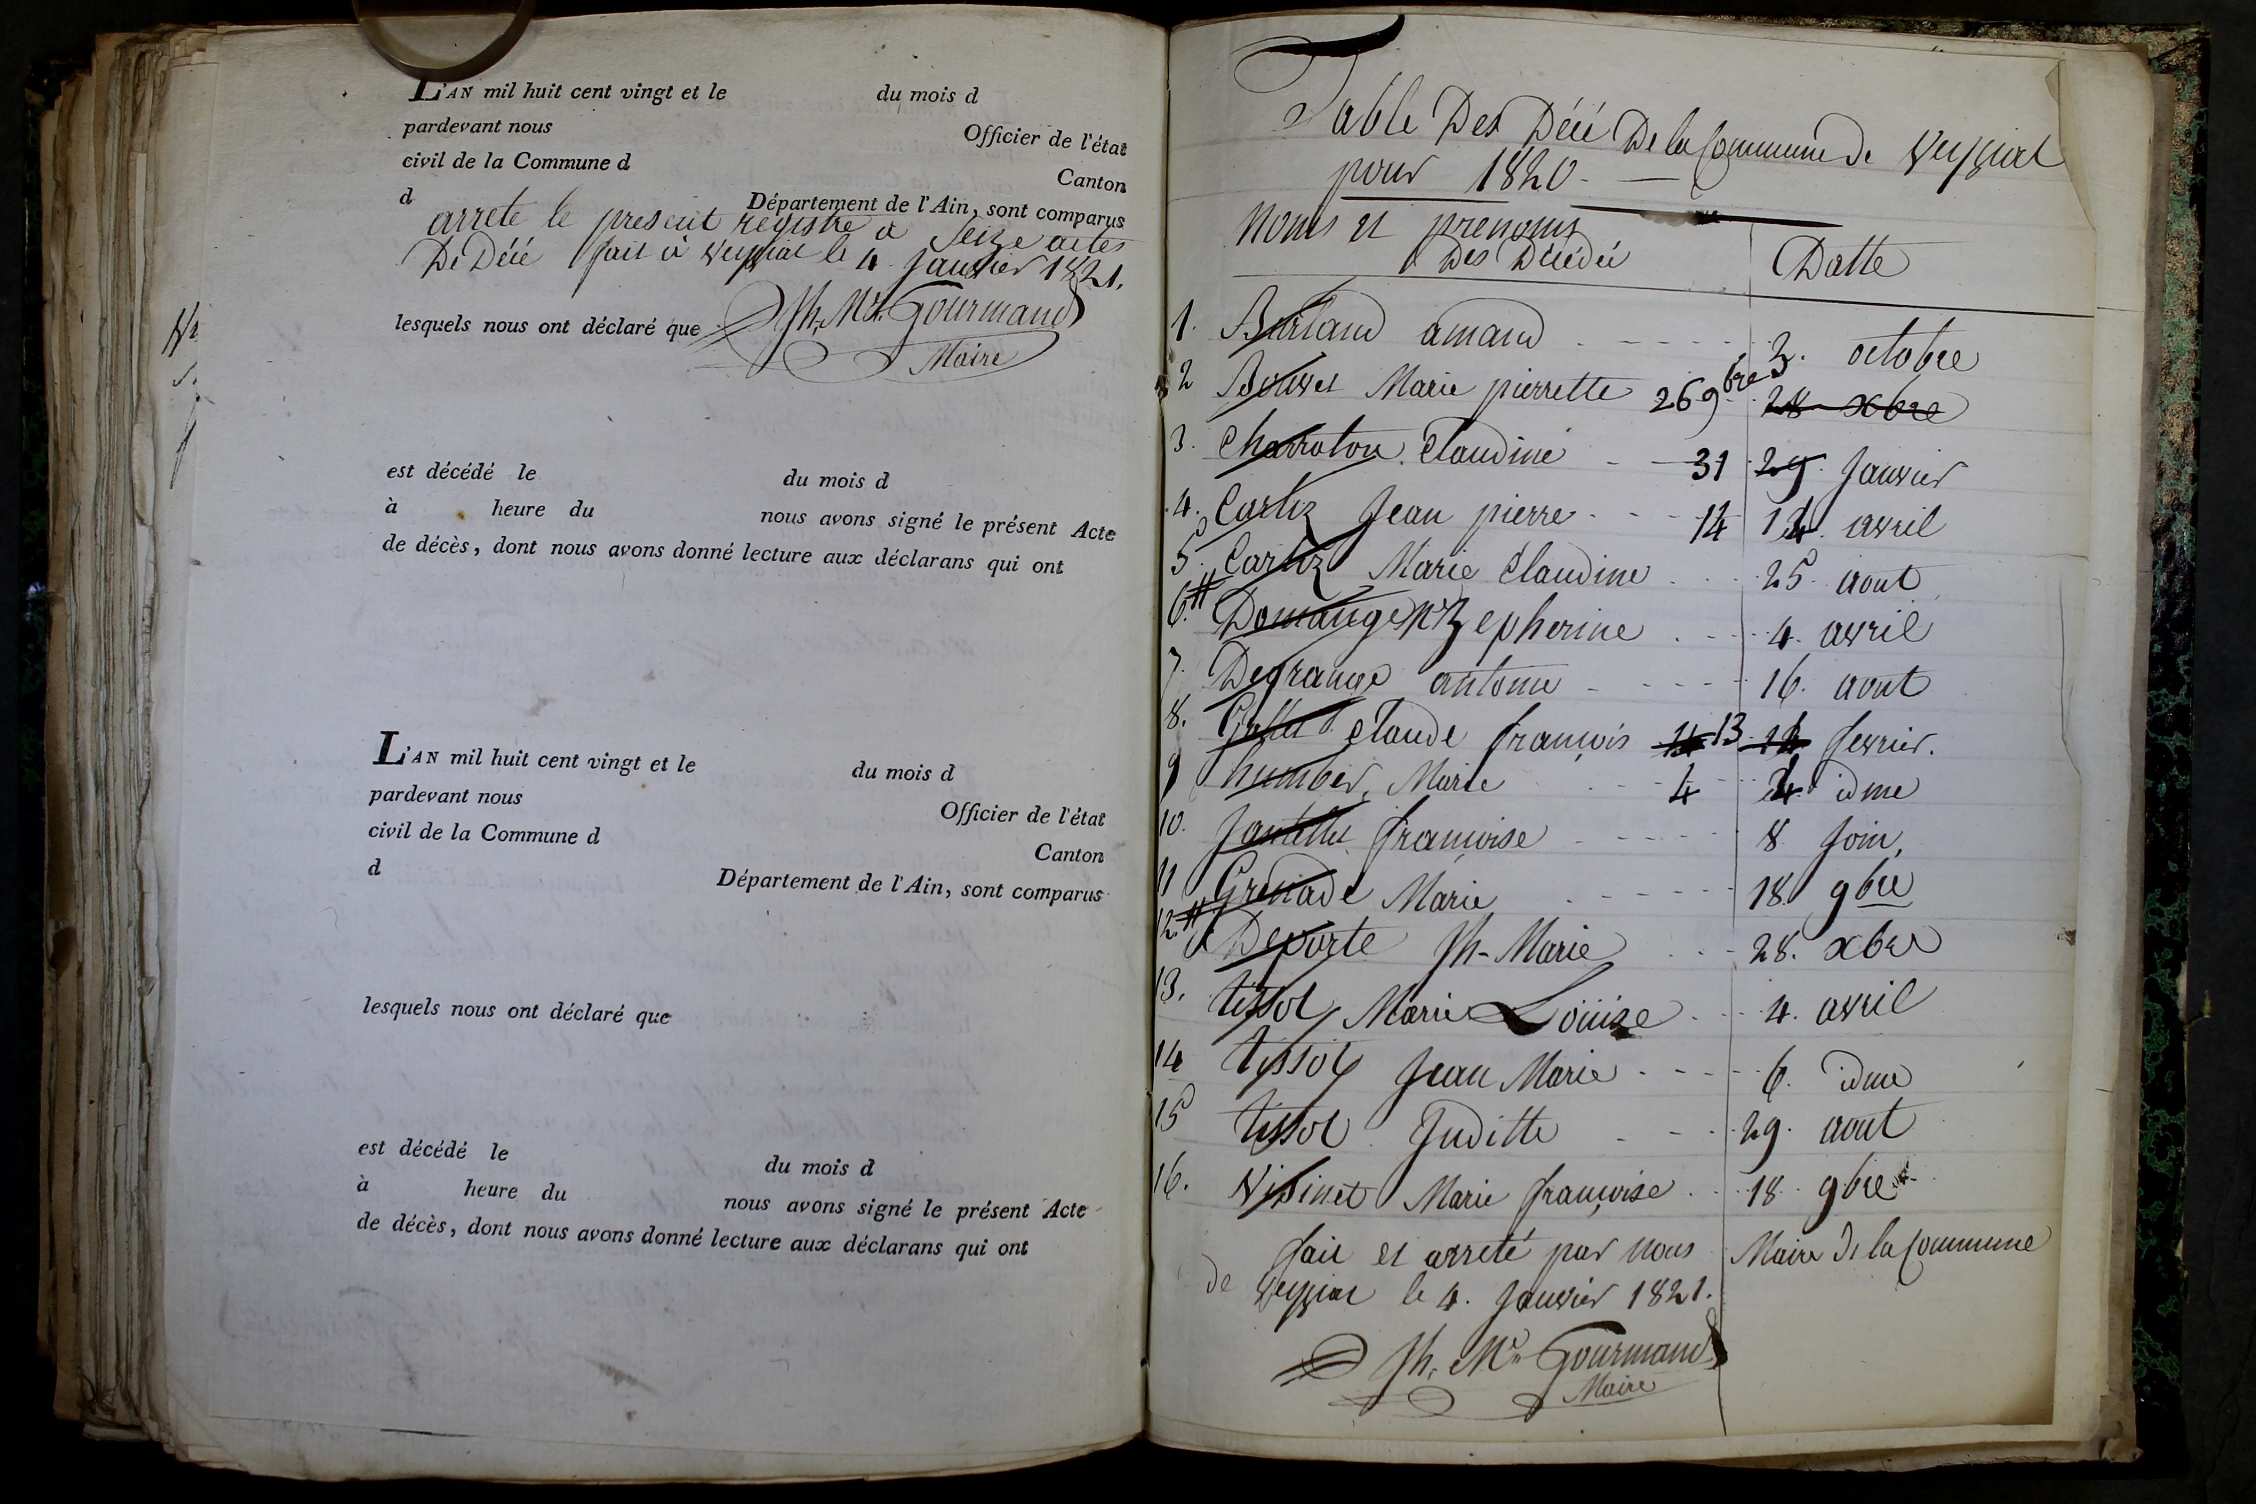 L'AN mil huit cent vingt et le du mois d
pardevant nous Officier de l'état
civil de la Commune d Canton
d Département de l'Ain, sont comparus
arrete le present registre a Seize actes
De Décé fait à Veyziat le 4 Janvier 1821.
lesquels nous ont déclaré que Jh. Me. Gourmand
Maire
est décédé le du mois d
à heure du nous avons signé le présent Acte
de décès, dont nous avons donné lecture aux déclarans qui ont
L'AN mil huit cent vingt et le du mois d
pardevant nous Officier de l'état
civil de la Commune d Canton
d Département de l'Ain, sont comparus
lesquels nous ont déclaré que
est décédé le du mois d
à heure du nous avons signé le présent Acte
de décès, dont nous avons donné lecture aux déclarans qui ont
Table Des Décé De la Commune de Veyziat
pour 1820
Noms et prenoms
Des Décédés Datte
1. amand 3. octobre
2 Bouvet Marie pierrette 26 9bre 28 xbre
3. Charroton Claudine 31 29 Janvier
4. Carliz Jean pierre 14 14 avril
5. Carliz Marie Claudine 25 aout
6. Domange Zepherine 4. avril
7. Degrange antoine 16. aout
8. Claude françois 14 13 14 fevrier.
9 humber, Marie 4 4 idme
10. françoise 8 Join,
11 Grenade Marie 18 9bre
12 Deporte Jh-Marie 28. xbre
13. tissot Marie Loüise 4. avril
14 tissot Jean Marie 6. idme
15 tissot Juditte 29. aout
16. Visinet Marie françoise 18 9bre
fait et arreté par nous Maire de la Commune
de Veyziat le 4. Janvier 1821.
Jh. Me Gourmand
Maire